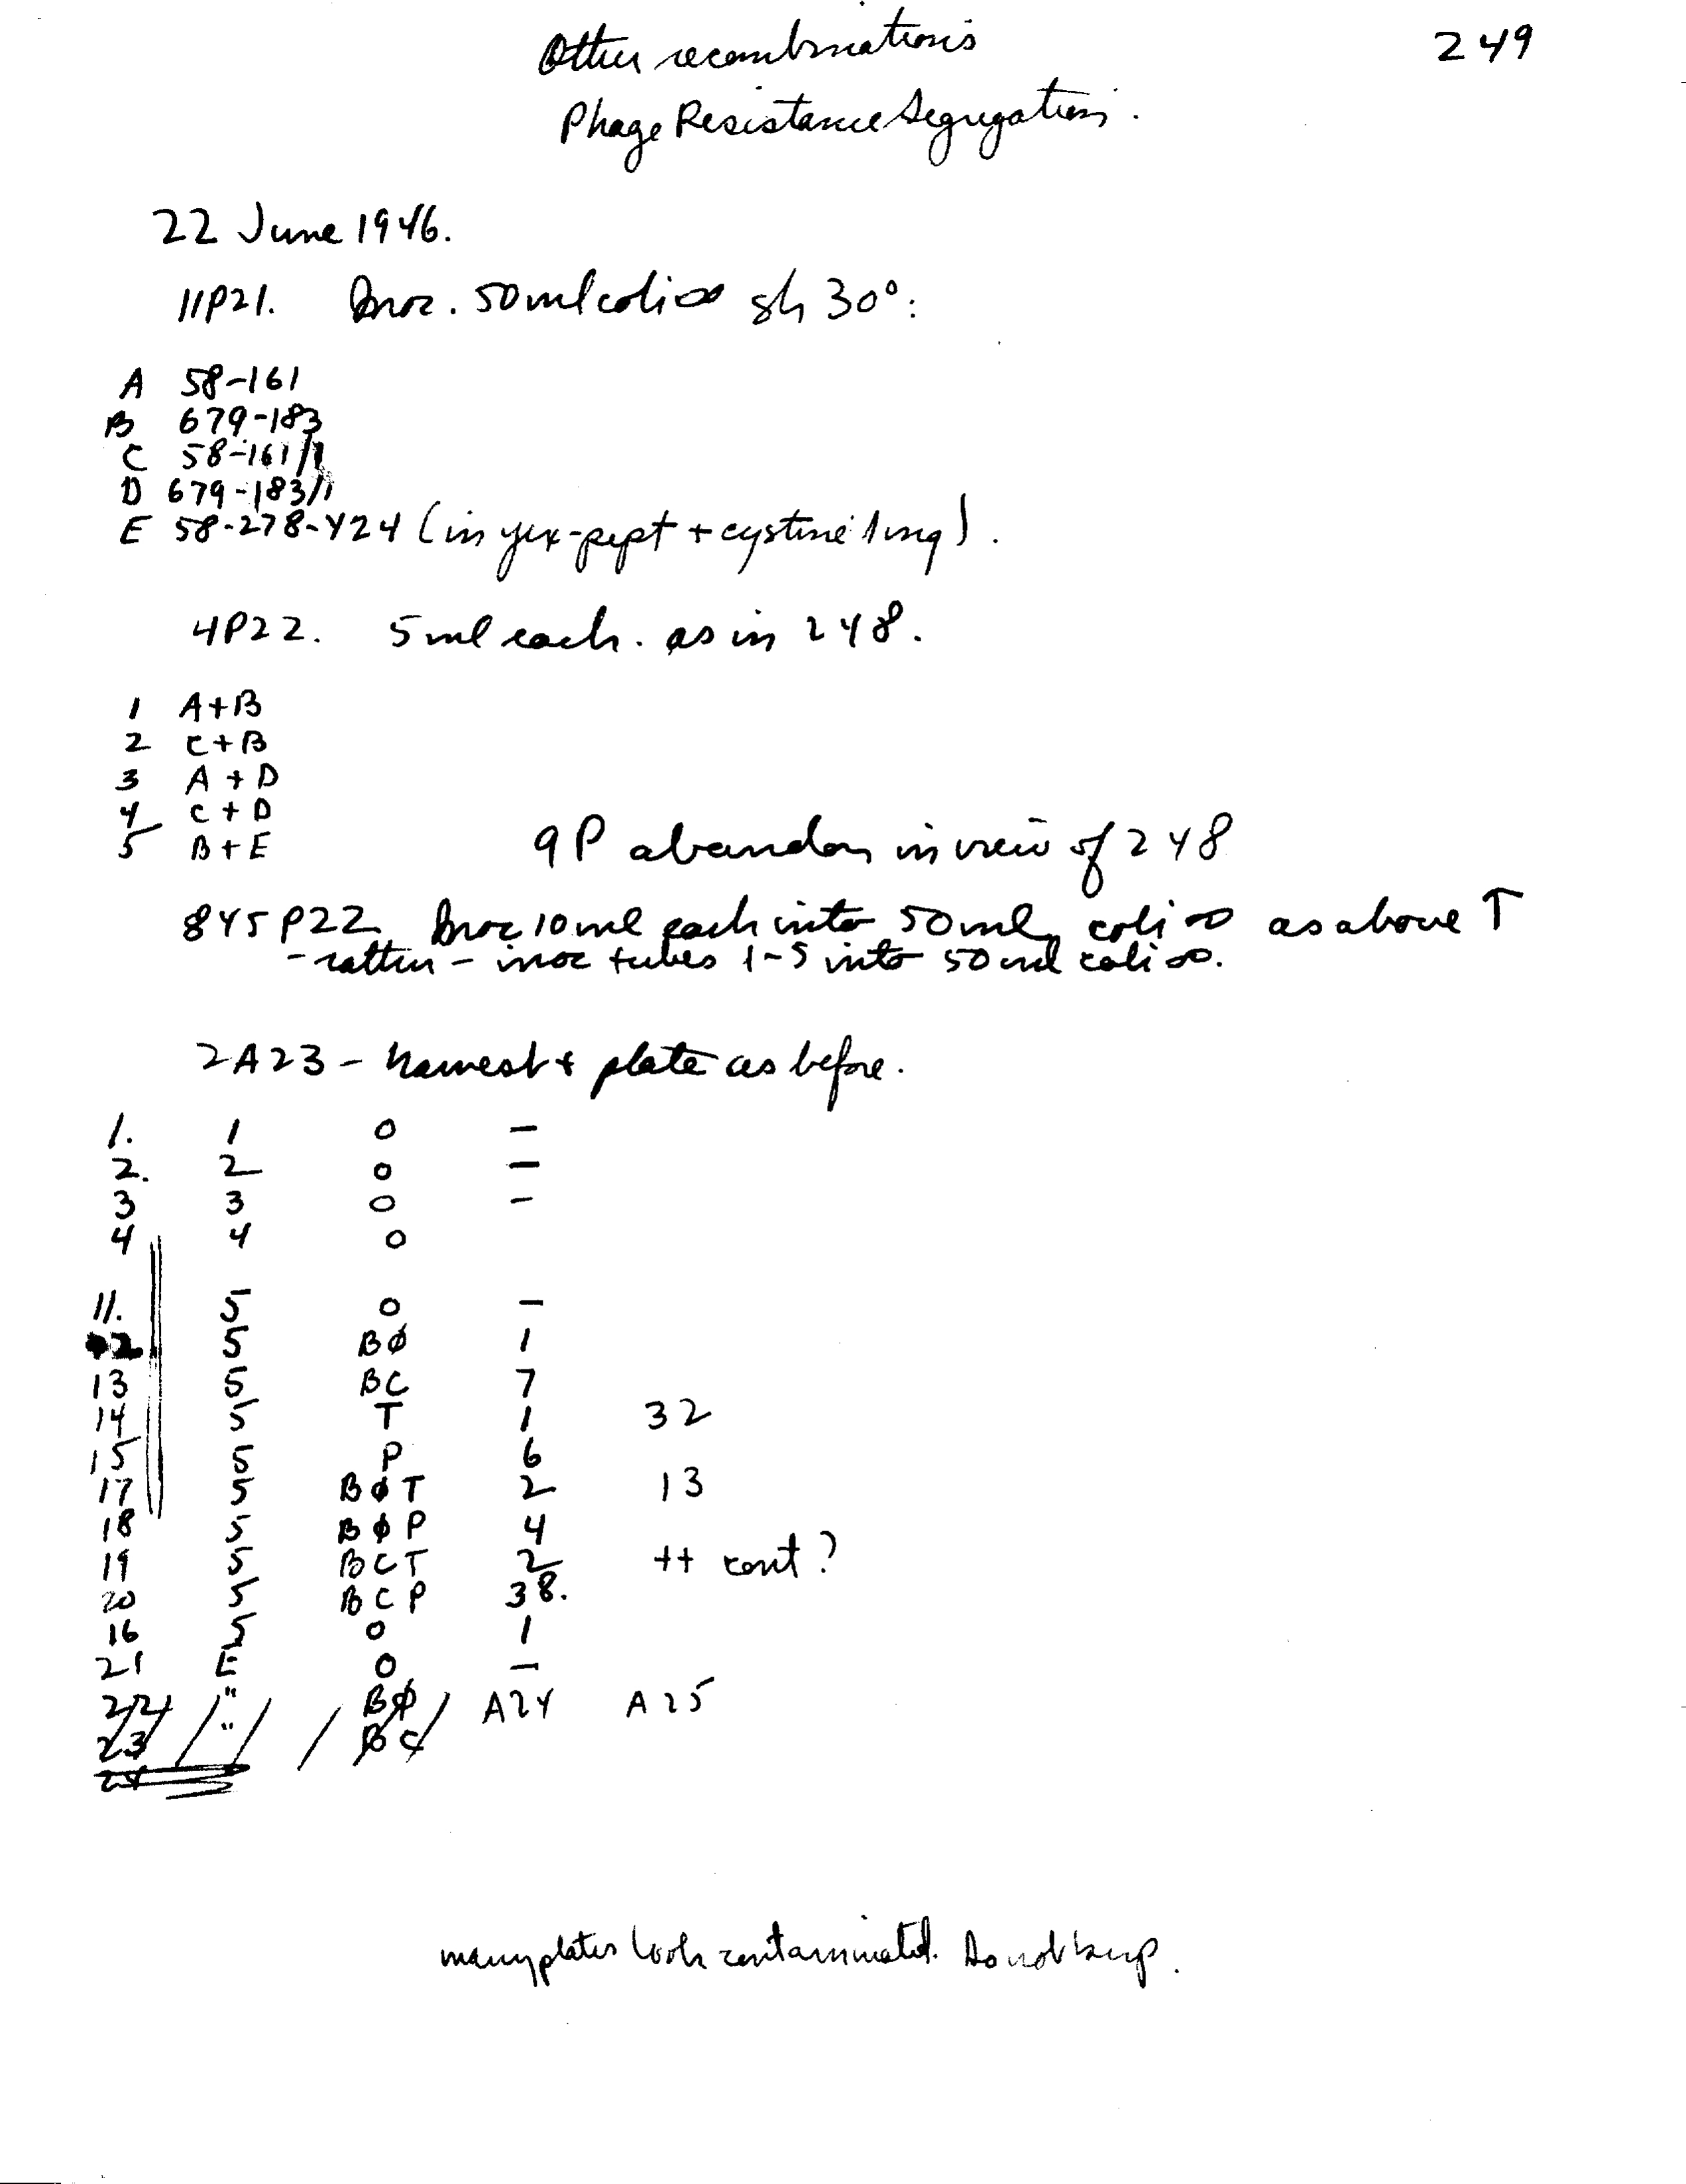 Other recombinations
249
Phage Resistance Segregation.
22 June 1946.
11P21. Inoc. 50 ml coli ∞ sh 30°:
A 58-161
B 679-183
C 58-161/1
D 679-183/1
E 58-278-Y24 (in yex-pept + cystine 1mg).
4P22. 5 ml each. as in 248.
1 A+B
2 C+B
3 A+D
4 C+D
5 B+E
9P abandon in view of 248
845P22. Inoc 10 ml each into 50 ml coli ∞ as above ↑
- rather - inoc tubes 1-5 into 50 ml coli ∞.
2A23 - Harvest + plate as before.
1. 1 0 -
2. 2 0 -
3 3 0 -
4 4 0
11. 5 0 -
12 5 BØ 1
13 5 BC 7
14 5 T 1 32
15 5 P 6
17 5 BØT 2 13
18 5 BØP 4
19 5 BCT 2 ++ cont?
20 5 BCP 38.
16 5 0 1
21 E 0 -
22 " BØ A24 A25
23 " BC
24
many plates look contaminated. Do not keep.